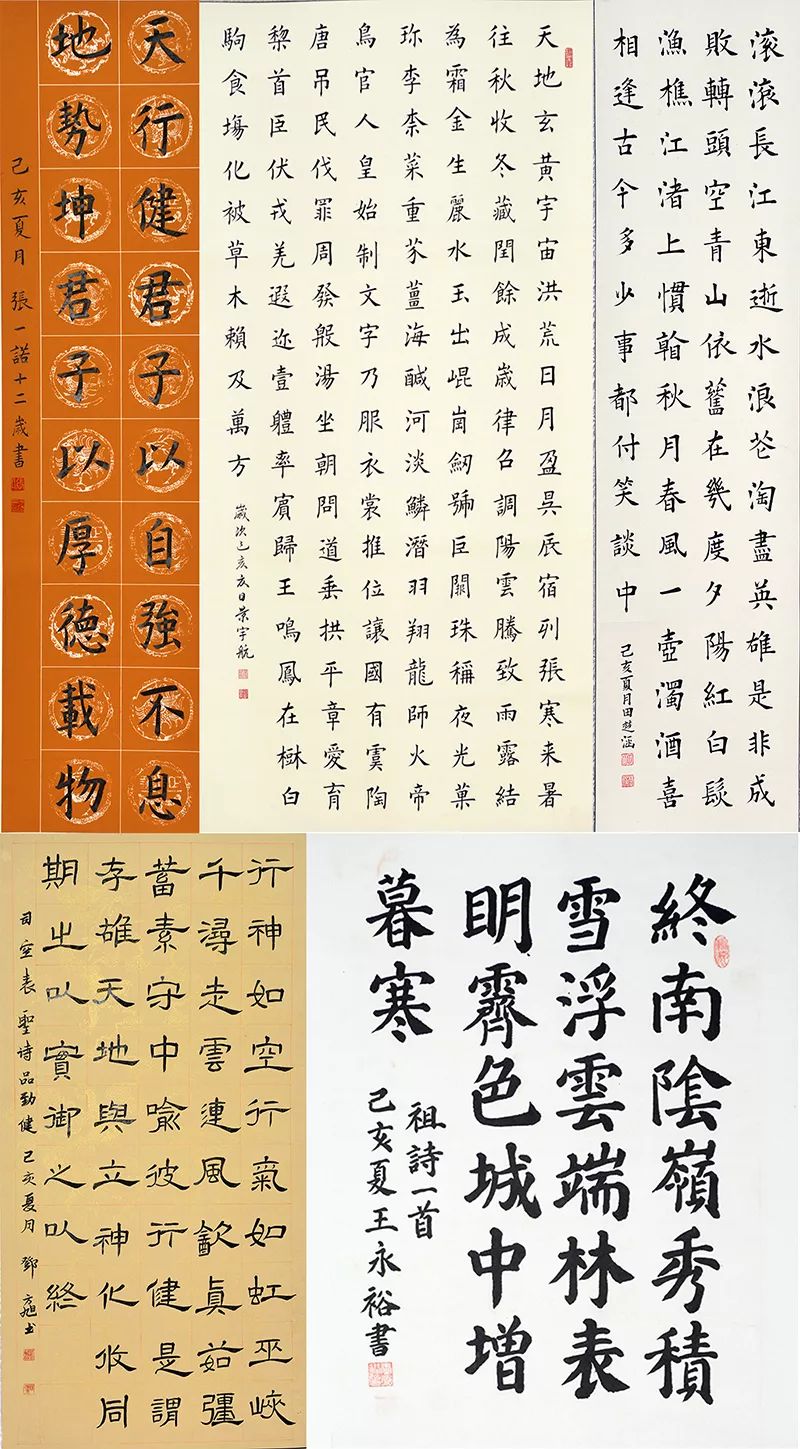 天行健君子以自強不息
地勢坤君子以厚德載物
己亥夏月 張一諾十二歲書
天地玄黃宇宙洪荒日月盈昃辰宿列張寒来暑
往秋收冬藏閏餘成歲律召調陽雲騰致雨露結
為霜金生麗水玉出崐崗劒號巨闕珠稱夜光菓
珎李柰菜重芥薑海醎河淡鱗潛羽翔龍師火帝
鳥官人皇始制文字乃服衣裳推位讓國有虞陶
唐吊民伐罪周發殷湯坐朝問道垂拱平章愛育
黎首臣伏戎羌遐迩壹軆率賓歸王鳴鳳在樹白
駒食場化被草木賴及萬方
歲次己亥夏日葉宇航
滾滾長江東逝水浪花淘盡英雄是非成
敗轉頭空青山依舊在幾度夕陽紅白髮
漁樵江渚上慣看秋月春風一壺濁酒喜
相逢古今多少事都付笑談中
己亥夏月田楚涵
行神如空行氣如虹巫峽
千尋走雲連風飲真茹彊
蓄素守中喻彼行健是謂
存雄天地與立神化攸同
期之以實御之以終
司空表聖诗品勁健 己亥夏月 鄧旭书
終南陰嶺秀積
雪浮雲端林表
明霽色城中增
暮寒
祖詩一首
己亥夏王永裕書